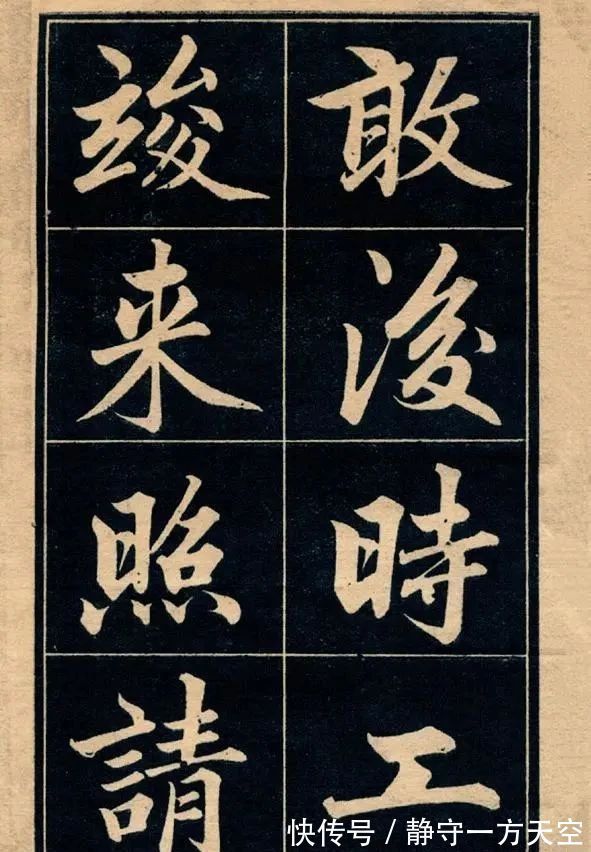 敢後時工
竣来照請
快传号 / 静守一方天空